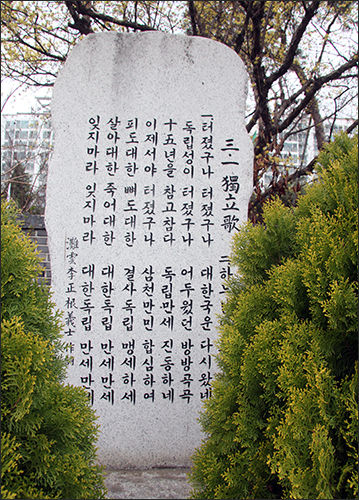 三·一 獨立歌
二하느
一터졌구나 터졌구나 대한국운 다시왔네
독립성이 터졌구나 어두웠던 방방곡곡
十五년을 참고참다 독립만세 진동하네
이제서야 터졌구나 삼천만민 합심하여
피도대한 뼈도대한 결사독립 맹세하세
살아대한 죽어대한 대한독립 만세만세
잊지마라 잊지마라 대한독립 만세만세
灘雲李正根義士作